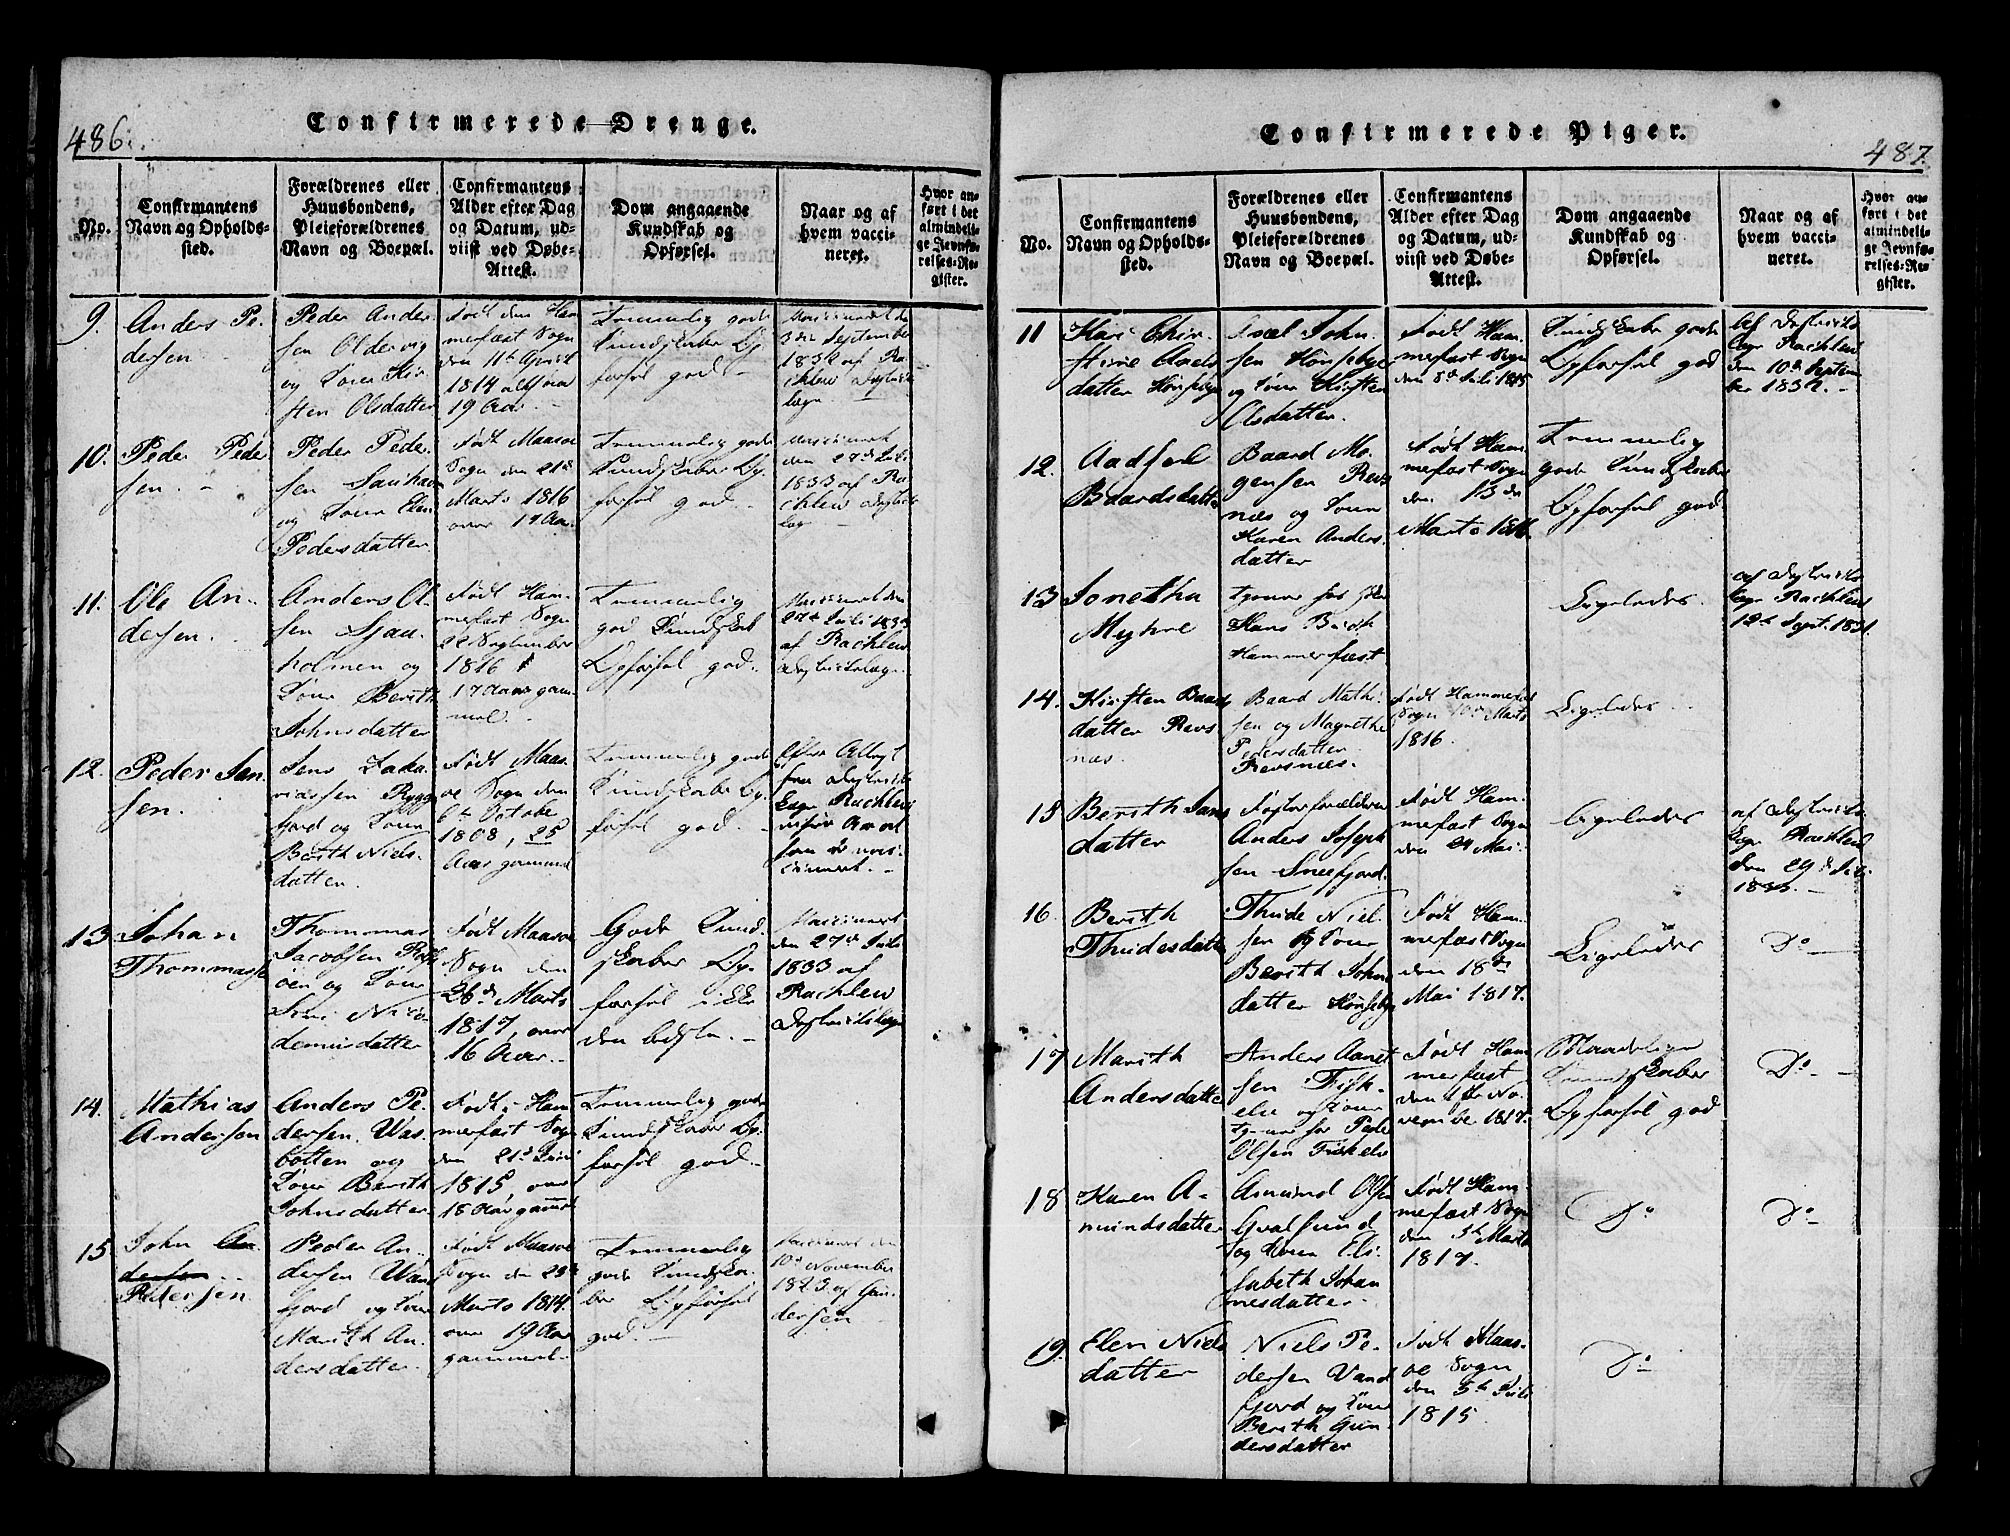 486.
Confirmerede Drenge.
No.
Confirmantens
Navn og Opholds-
sted.
Forældrenes eller
Huusbondens,
Pleieforældrenes
Navn og Boepæl.
Confirmantens
Alder efter Dag
og Datum, ud-
viist ved Døbe-
Attest.
Dom angaaende
Kundskab og
Opførsel.
Naar og af
hvem vacci-
neret.
Hvor an-
ført i det
almindeli-
ge Jevnfø-
relses-Re-
gister.
9.
Anders Pe-
dersen
Peder Ander-
sen Oldervig
og Kone Kir-
sten Olsdatter
Født den Ham
mefast Sogn
den 11te April
1814
19 Aar.
Temmelig gode
Kundskaber Op-
førsel god
3die September
1832 af Ra-
chlew Distrikts
læge.
10.
Peder Peder
sen.
Peder Peder
sen
og Kone Elen
Pedersdatter
Født Maasøe
Sogn den 21de
Marts 1816
over 17 Aar.
Temmelig gode
Kundskaber Op-
førsel god.
Vaccineret
den 27de Juli
1833 af Ra-
chlew Distrikts
læge
11.
Ole An-
dersen.
Anders Ol-
sen
holmen og
Kone Berith
Johnsdatter
Født Ham-
mefast Sogn
22 September
1816
17 Aar gam-
mel.
Temmelig
god Kundskab
Opførsel god.
Vaccineret den
27de Juli 1833
af Rachlew
Distriktslæge
12.
Peder Jen
sen.
Jens Zaka-
riassen Rygg
fjord og Kone
Berith Niels-
datter.
Født Maas-
øe Sogn den
6te October
1808, 25
Aar gammel
Temmelig gode
Kundskaber Op-
førsel god.
fra Distrikts
Læge Rachlew
13
Johan
Thommasse
Thommas
Jacobsen
øen og Kone
Nico-
demusdatter
Født Maasøe
Sogn den
26de Marts
1817, over
16 Aar.
Gode Kund-
skaber Op-
førsel ikke
den bedste.
Vaccineret
den 27de Juli
1833 af
Rachlew
Distriktslæge
14.
Mathias
Andersen
Anders Pe-
dersen Was-
botten og
Kone Berith
Johnsdatter
Født Ham
mefast Sogn
den 21de Juni
1815 over
18 Aar gammel
Temmelig gode
Kundskaber Op-
førsel god.
15
John An-
dersen
Pedersen
Peder An-
dersen Wan
fjord og Kone
Marith An-
dersdatter.
Født Maasøe
Sogn den 29de
Marts 1814.
over 19 Aar
gammel
Temmelig
gode Kundska-
ber Opførsel
god.
Vaccineret den
10de November
1823 af Gun-
dersen
487.
Confirmerede Piger.
No.
Confirmantens
Navn og Opholds-
sted.
Forældrenes eller
Huusbondens,
Pleieforældrenes
Navn og Boepæl.
Confirmantens
Alder efter Dag
og Datum, ud-
viist ved Døbe-
Attest.
Dom angaaende
Kundskab og
Opførsel.
Naar og af
hvem vacci-
neret.
Hvor an-
ført i det
almindeli-
ge Jevnfø-
relses-Re-
gister.
11
Kari Chir-
stine Axels
datter Hønseby
Axel John-
sen Hønsebye
og Kone Kirsten
Olsdatter.
Født Ham-
mefast Sogn
den 8de Juli 1815
Kundskaber gode
Opførsel god
af Distrikts
læge Rachlew
den 10de Septem
ber 1832.
12.
Aadsel
Baardsdatte
Baard Mo-
gensen Revs
næs og Kone
Karen Anders-
datter
Født Ham-
mefast Sogn
den 13de
Marts 1816.
Temmelig
gode Kundskaber
Opførsel god
13
Jonetha
Myhre
tjener hos
Hans Buck
Hammerfæst
Ligeledes.
af Distrikts
læge Rachlew
12te Sept. 1831.
14.
Kirsten Baards
datter Revs
næs.
Baard Mathi-
sen og Magrethe
Pedersdatter
Revsnæs.
Født Hammefast
Sogn 10de Marts
1816.
Ligeledes
15
Berith Jans
datter
Fosterforældrene
Anders Joseph
sen Sneefjord.
Født Ham-
mefast Sogn
den 24 Mai
Ligeledes
af Distrikts
læge Rachlew
den 29de Juli
1833.
16.
Berith
Thudesdatter
Thude Niel-
sen og Kone
Berith Johns
datter Hønseby
Født Ham-
mefast Sogn
den 18de
Mai 1817.
Ligeledes
Do
17
Marith
Andersdatte
Anders Aanet
sen Fisk-
elv og Kone
tjener hos Peder
Olsen Fiskelv
Født Ham
merfast
den 1ste No-
vember 1817.
Maadelige
Kundskaber
Opførsel god
Do
18
Karen A-
mundsdatter
Amund Olsen
Qvalsund
og Kone Eli-
sabeth Johan
nesdatter.
Født Ham-
mefast Sogn
den 5te Marts
1817.
Do
Do
19.
Elen Niels
datter
Niels Pe-
dersen Vand
fjord og Kone
Berith Gun-
dersdatter
Født Maas-
øe Sogn
den 5te Juli
1815.
Do